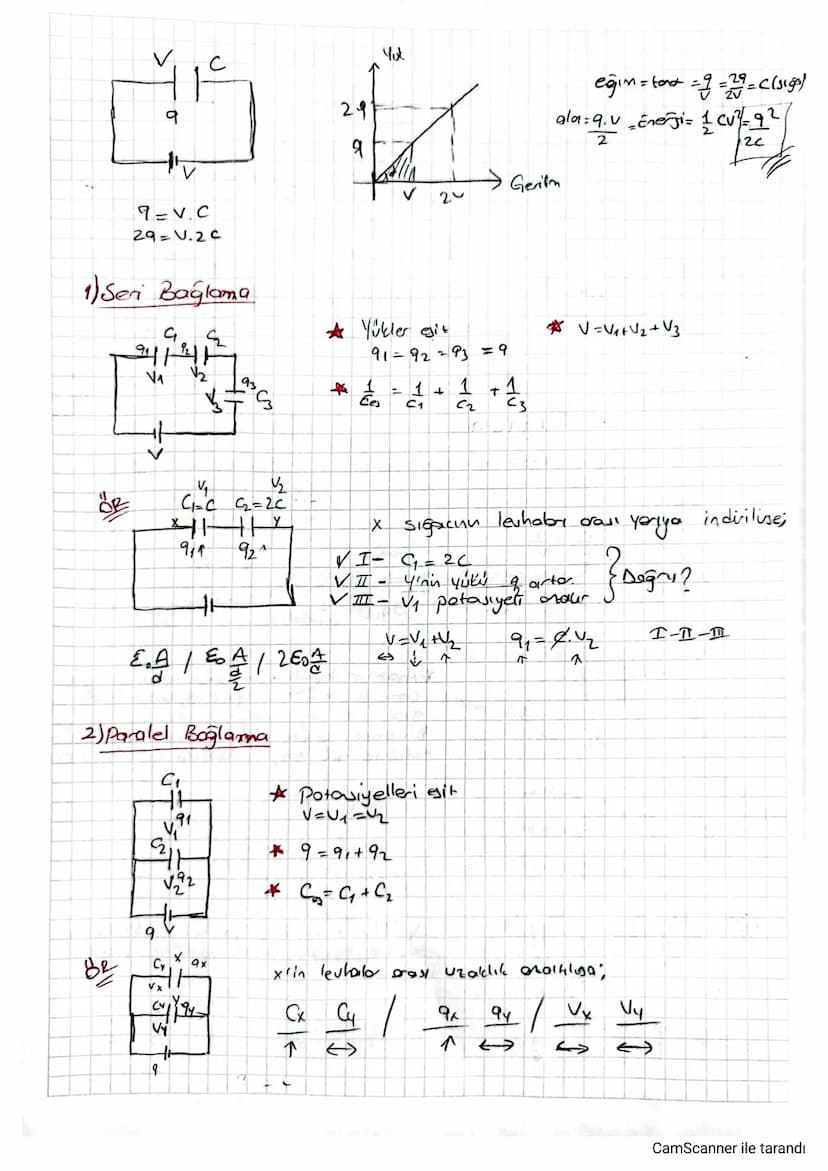 V C
q
V
q = V.C
2q = V.2C
Yük
2q
q
V 2V
Gerilim
eğim = tanα = q/V = 2q/2V = C (sığa)
alan = q.V/2 = Enerji = 1/2 CV² = q²/2C
1) Seri Bağlama
C1 C2
q1 q2
V1 V2
V3 q3 C3
V
★ Yükler eşit
q1 = q2 = q3 = q
★ V = V1 + V2 + V3
★ 1/Ceş = 1/C1 + 1/C2 + 1/C3
ÖR
V1 V2
C1=C C2=2C
X Y
q1↑ q2↑
X sığacının levhaları arası yarıya indirilirse;
√ I- C1 = 2C
√ II- Y'nin yükü q artar.
√ III- V1 potansiyeli azalır
} Doğru?
ε0 A/d / ε0 A/(d/2) / 2ε0 A/d
V = V1 + V2
↔ ↓ ↑
q1 = C.V2
↑ ↑
I-II-III
2) Paralel Bağlama
C1
V1 q1
C2
V2 q2
q V
★ Potansiyelleri eşit
V = V1 = V2
★ q = q1 + q2
★ Ceş = C1 + C2
ÖR
X qx
Vx
Y qy
Vy
q
x'in levhalar arası uzaklık azaltılırsa;
Cx Cy / qx qy / Vx Vy
↑ ↔ ↑ ↔ ↔ ↔
CamScanner ile tarandı